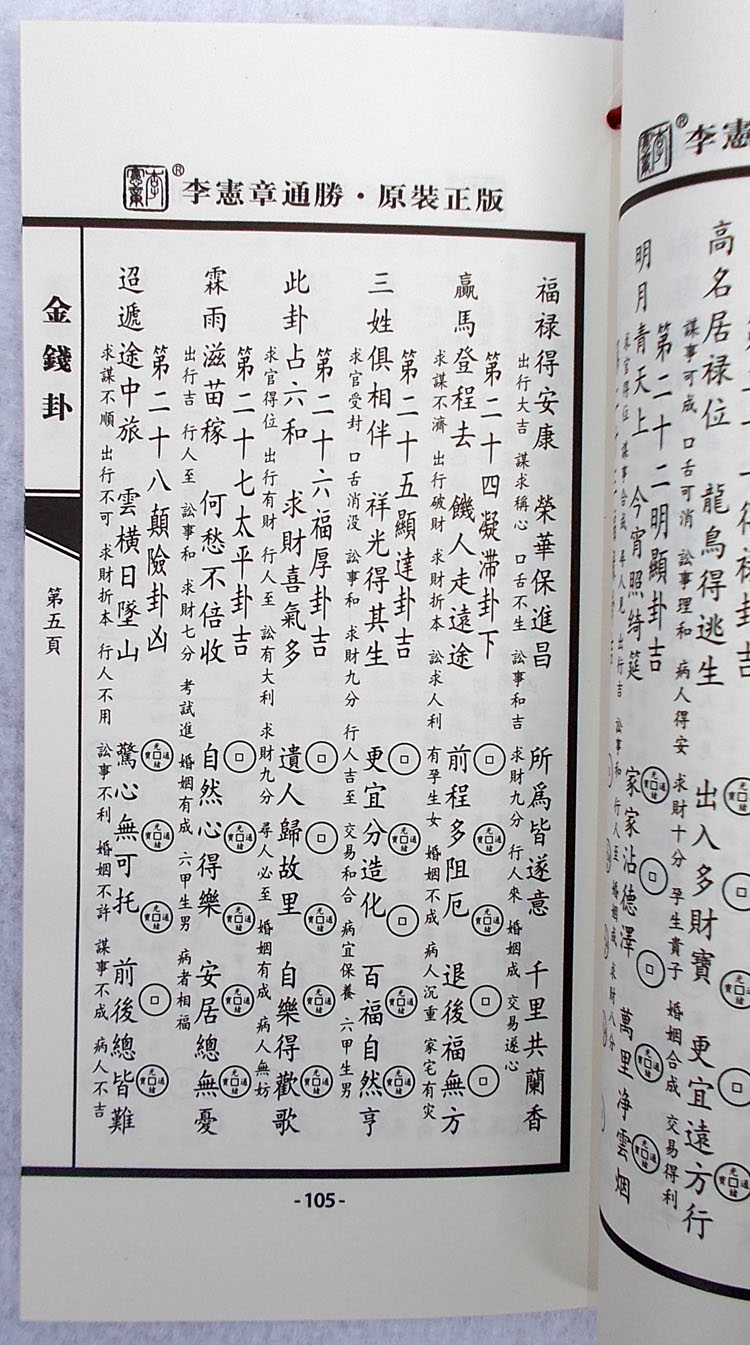 李憲章通勝・原裝正版
福禄得安康 榮華保進昌 所為皆遂意 千里共蘭香
出行大吉 謀求稱心 口舌不生 訟事和吉 求財九分 行人來 婚姻成 交易遂心
第二十四凝滯卦下
羸馬登程去 饑人走遠途 前程多阻厄 退後福無方
求謀不濟 出行破財 求財折本 訟求人利 有孕生女 婚姻不成 病人沉重 家宅有灾
第二十五顯達卦吉
三姓俱相伴 祥光得其生 更宜分造化 百福自然亨
求官受封 口舌消没 訟事和 求財九分 行人吉至 交易和合 病宜保養 六甲生男
第二十六福厚卦吉
此卦占六和 求財喜氣多 遺人歸故里 自樂得歡歌
求官得位 出行有財 行人至 訟有大利 求財九分 尋人必至 婚姻有成 病人無妨
第二十七太平卦吉
霖雨滋苗稼 何愁不倍收 自然心得樂 安居總無憂
出行吉 行人至 訟事和 求財七分 考試進 婚姻有成 六甲生男 病者相福
第二十八顛險卦凶
迢遞途中旅 雲橫日墜山 驚心無可托 前後總皆難
求謀不順 出行不可 求財折本 行人不用 訟事不利 婚姻不許 謀事不成 病人不吉
金錢卦
第五頁
-105-
李憲
高名居禄位 龍鳥得逃生 出入多財寶 更宜遠方行
謀事可成 口舌可消 訟事理和 病人得安 求財十分 孕生貴子 婚姻合成 交易得利
第二十二明顯卦吉
明月青天上 今宵照綺筵 家家沾德澤 萬里净雲烟
求官得位 謀事合成 尋人見 出行吉 訟事和 行人至 婚姻成 求財八分